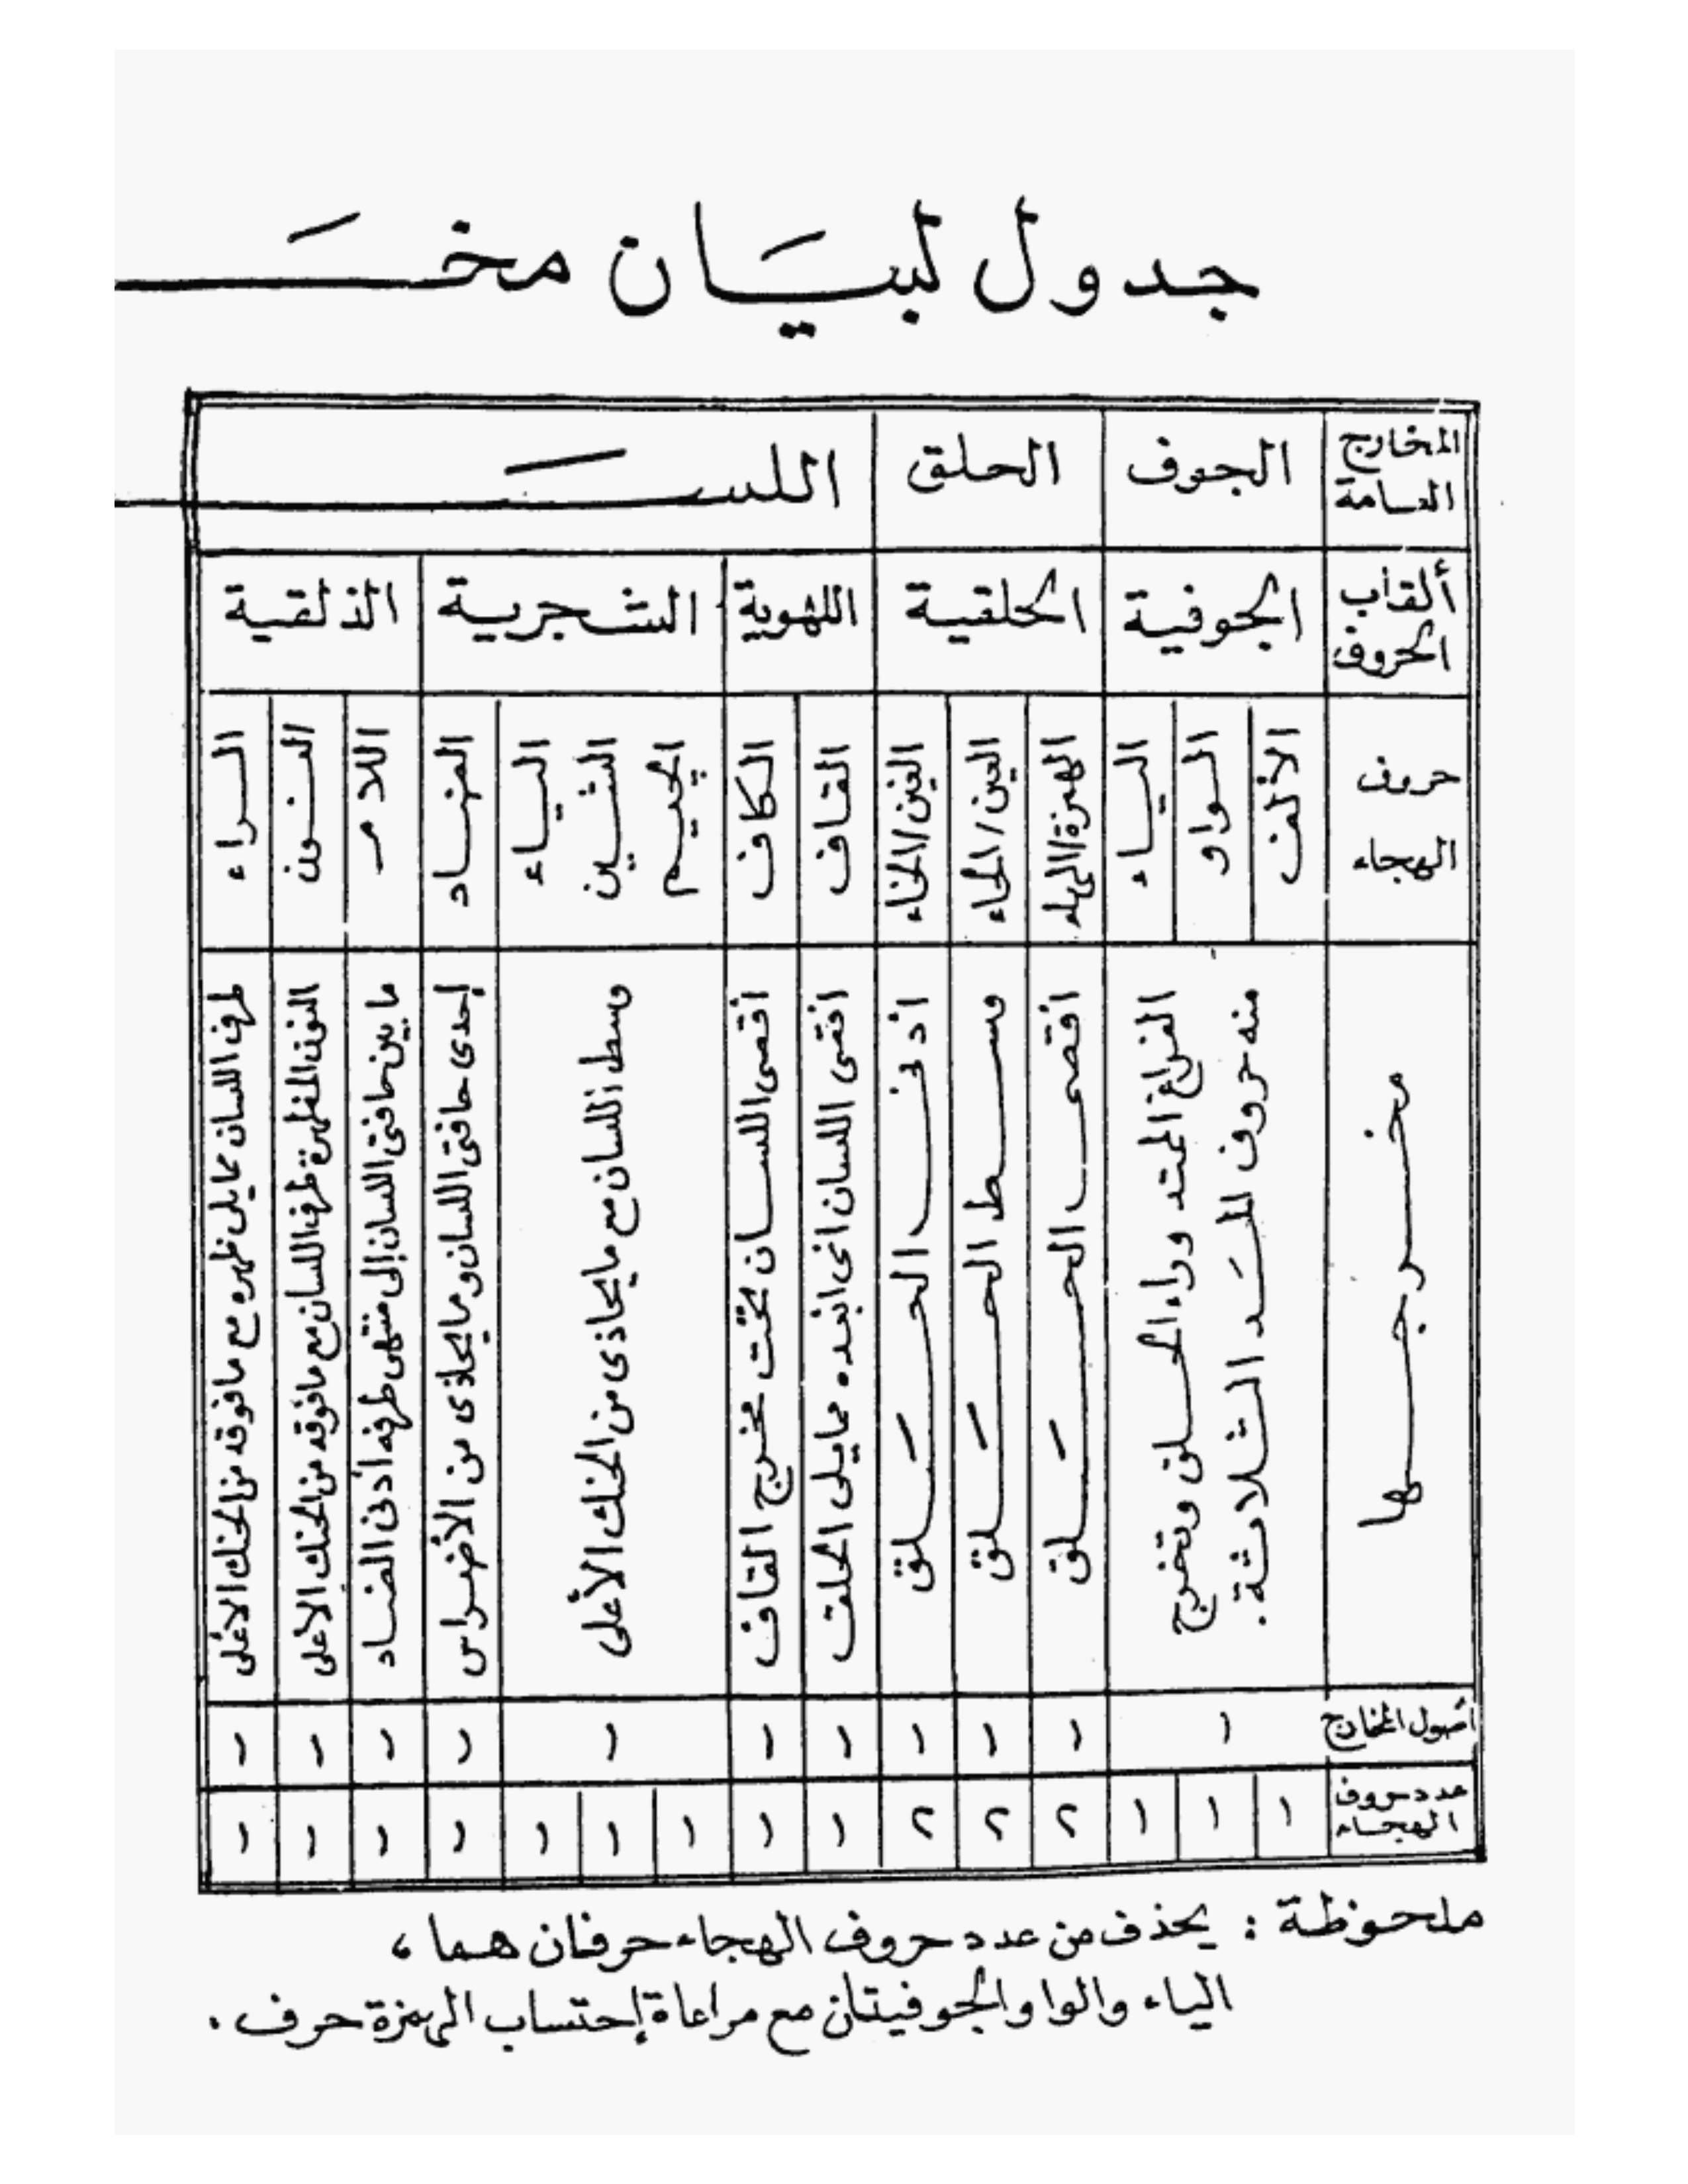 جدول لبيَان مخَـ
المخارج العامة
الجوف
الحلق
اللسَـ
ألقاب الحروف
الجوفية
الحلقية
اللهوية
الشجرية
الذلقية
حروف الهجاء
الألف
الواو
الياء
الهمزة/الهاء
العين/الحاء
الغين/الخاء
القاف
الكاف
الجيم
الشين
الياء
الضاد
اللام
النون
الراء
مخرجها
الفراغ الممتد وراء الحلق وتخرج
منه حروف المَد الثلاثة.
اقصى الحَلق
وسط الحَلق
ادنى الحَلق
اقصى اللسان اى ابعده مما يلى الحلق
اقصى اللسان تحت مخرج القاف
وسط اللسان مع ما يحاذى من الحنك الأعلى
إحدى حافتى اللسان وما يحاذى من الأضراس
ما بين حافتى اللسان إلى منتهى طرفه أدنى الضاد
النون المظهرة طرف اللسان مع مافوقه من الحنك الأعلى
طرف اللسان مما يلى ظهره مع مافوقه من الحنك الاعلى
أصول المخارج
١
١
١
١
١
١
١
١
١
١
١
عدد حروف الهجاء
١
١
١
٢
٢
٢
١
١
١
١
١
١
١
١
١
ملحوظة : يحذف من عدد حروف الهجاء حرفان هما ،
الياء والواو الجوفيتان مع مراعاة إحتساب الهمزة حرف .